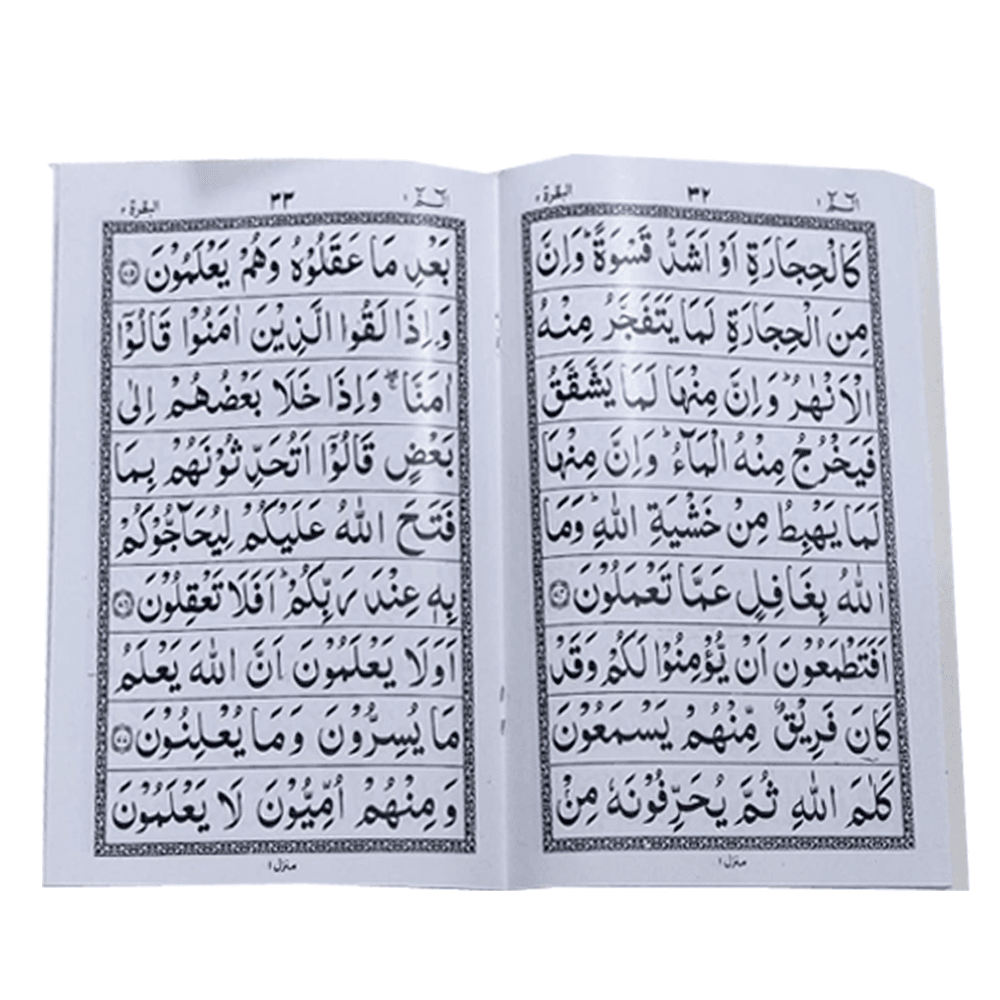 البقرة ٢ ٣٢ الٓمّٓ ١
كَالْحِجَارَةِ اَوْ اَشَدُّ قَسْوَةً ؕ وَاِنَّ
مِنَ الْحِجَارَةِ لَمَا يَتَفَجَّرُ مِنْهُ
الْاَنْهٰرُ ؕ وَاِنَّ مِنْهَا لَمَا يَشَّقَّقُ
فَيَخْرُجُ مِنْهُ الْمَآءُ ؕ وَاِنَّ مِنْهَا
لَمَا يَهْبِطُ مِنْ خَشْيَةِ اللّٰهِ ؕ وَمَا
اللّٰهُ بِغَافِلٍ عَمَّا تَعْمَلُوْنَ ﴿۷۴﴾
اَفَتَطْمَعُوْنَ اَنْ يُّؤْمِنُوْا لَكُمْ وَقَدْ
كَانَ فَرِيْقٌ مِّنْهُمْ يَسْمَعُوْنَ
كَلٰمَ اللّٰهِ ثُمَّ يُحَرِّفُوْنَهٗ مِنْۢ
منزل ١
البقرة ٢ ٣٣ الٓمّٓ ١
بَعْدِ مَا عَقَلُوْهُ وَهُمْ يَعْلَمُوْنَ ﴿۷۵﴾
وَاِذَا لَقُوا الَّذِيْنَ اٰمَنُوْا قَالُوْٓا
اٰمَنَّا ۚۖ وَاِذَا خَلَا بَعْضُهُمْ اِلٰى
بَعْضٍ قَالُوْٓا اَتُحَدِّثُوْنَهُمْ بِمَا
فَتَحَ اللّٰهُ عَلَيْكُمْ لِيُحَآجُّوْكُمْ
بِهٖ عِنْدَ رَبِّكُمْ ؕ اَفَلَا تَعْقِلُوْنَ ﴿۷۶﴾
اَوَلَا يَعْلَمُوْنَ اَنَّ اللّٰهَ يَعْلَمُ
مَا يُسِرُّوْنَ وَمَا يُعْلِنُوْنَ ﴿۷۷﴾
وَمِنْهُمْ اُمِّيُّوْنَ لَا يَعْلَمُوْنَ
منزل ١